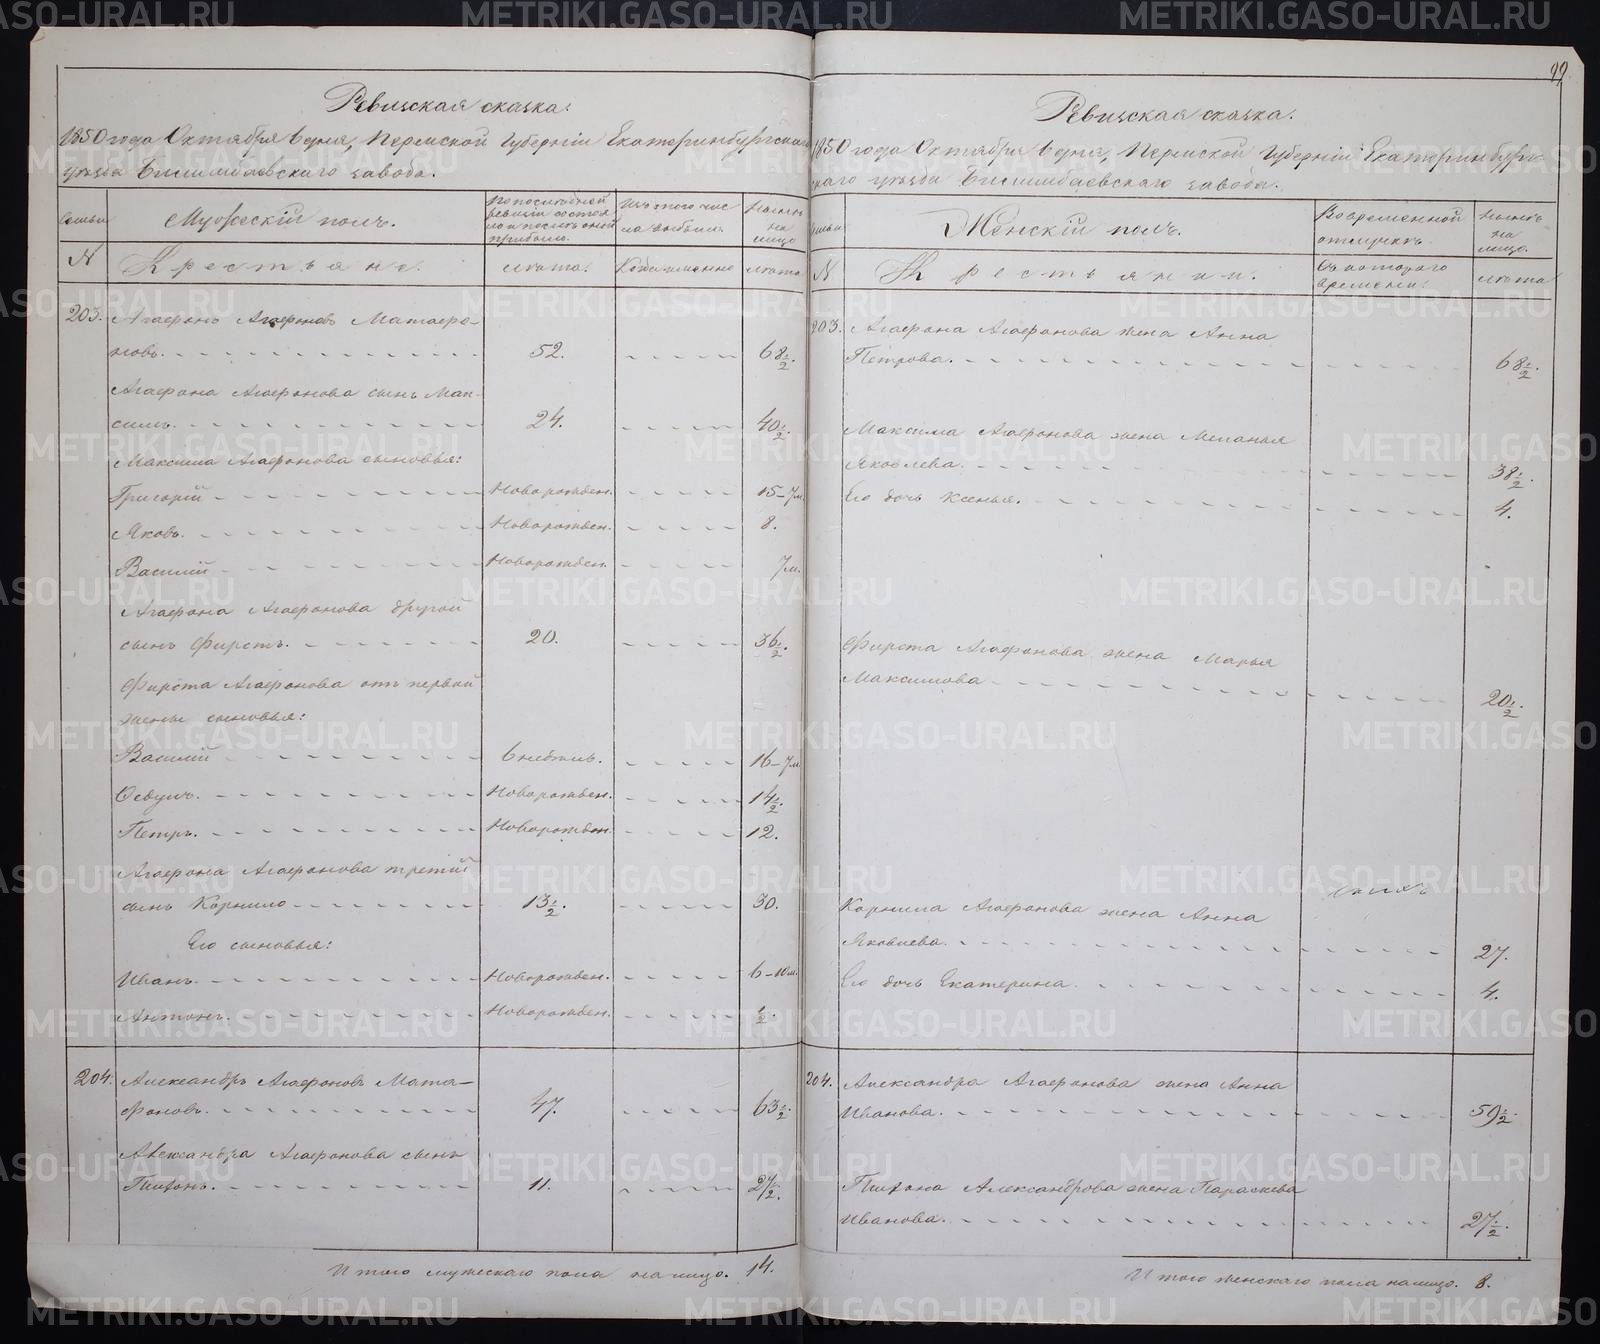 99
Ревизская сказка.
1850 года Октября 6 дня, Пермской Губерніи Екатеринбургскаго
уѣзда Билимбаевскаго завода.
Семьи
Мужескій полъ.
По послѣдней ревизіи состояло и послѣ оной прибыло.
Изъ того числа выбыло.
Нынѣ на лицо
N
Крестьяне.
лѣта.
Когда именно
лѣта
203. Агафонъ Агафоновъ Матафо-
новъ. 52. 68½.
Агафона Агафонова сынъ Мак-
симъ. 24. 40½.
Максима Агафонова сыновья:
Григорій Новорожден. 15-7м.
Яковъ. Новорожден. 8.
Василій Новорожден. 7м.
Агафона Агафонова другой
сынъ Фирстъ. 20. 36½.
Фирста Агафонова отъ первой
жены сыновья:
Василій 6 недѣль. 16-7м.
Новорожден. 14½.
Петръ. Новорожден. 12.
Агафона Агафонова третій
сынъ Корнило 13½. 30.
Его сыновья:
Иванъ. Новорожден. 6-10м.
Антонъ. Новорожден. ½.
204. Александръ Агафоновъ Мата-
фоновъ. 47. 63½.
Александра Агафонова сынъ
Тихонъ. 11. 27½.
Итого мужескаго пола на лицо. 14.
Ревизская сказка.
1850 года Октября 6 дня, Пермской Губерніи Екатеринбург-
скаго уѣзда Билимбаевскаго завода.
Семьи
Женскій полъ.
Во временной отлучкѣ.
Нынѣ на лицо.
N
Крестьянки.
Съ котораго времени.
лѣта
203. Агафона Агафонова жена Анна
Петрова. 68½.
Максима Агафонова жена Меланья
Яковлева. 38½.
Его дочь Ксенья. 4.
Фирста Агафонова жена Марья
Максимова 20½.
Корнила Агафонова жена Анна
Яковлева. 27.
Его дочь Екатерина. 4.
204. Александра Агафонова жена Анна
Иванова. 59½.
Тихона Александрова жена Параскева
Иванова. 27½.
Итого женскаго пола на лицо. 8.
METRIKI.GASO-URAL.RU